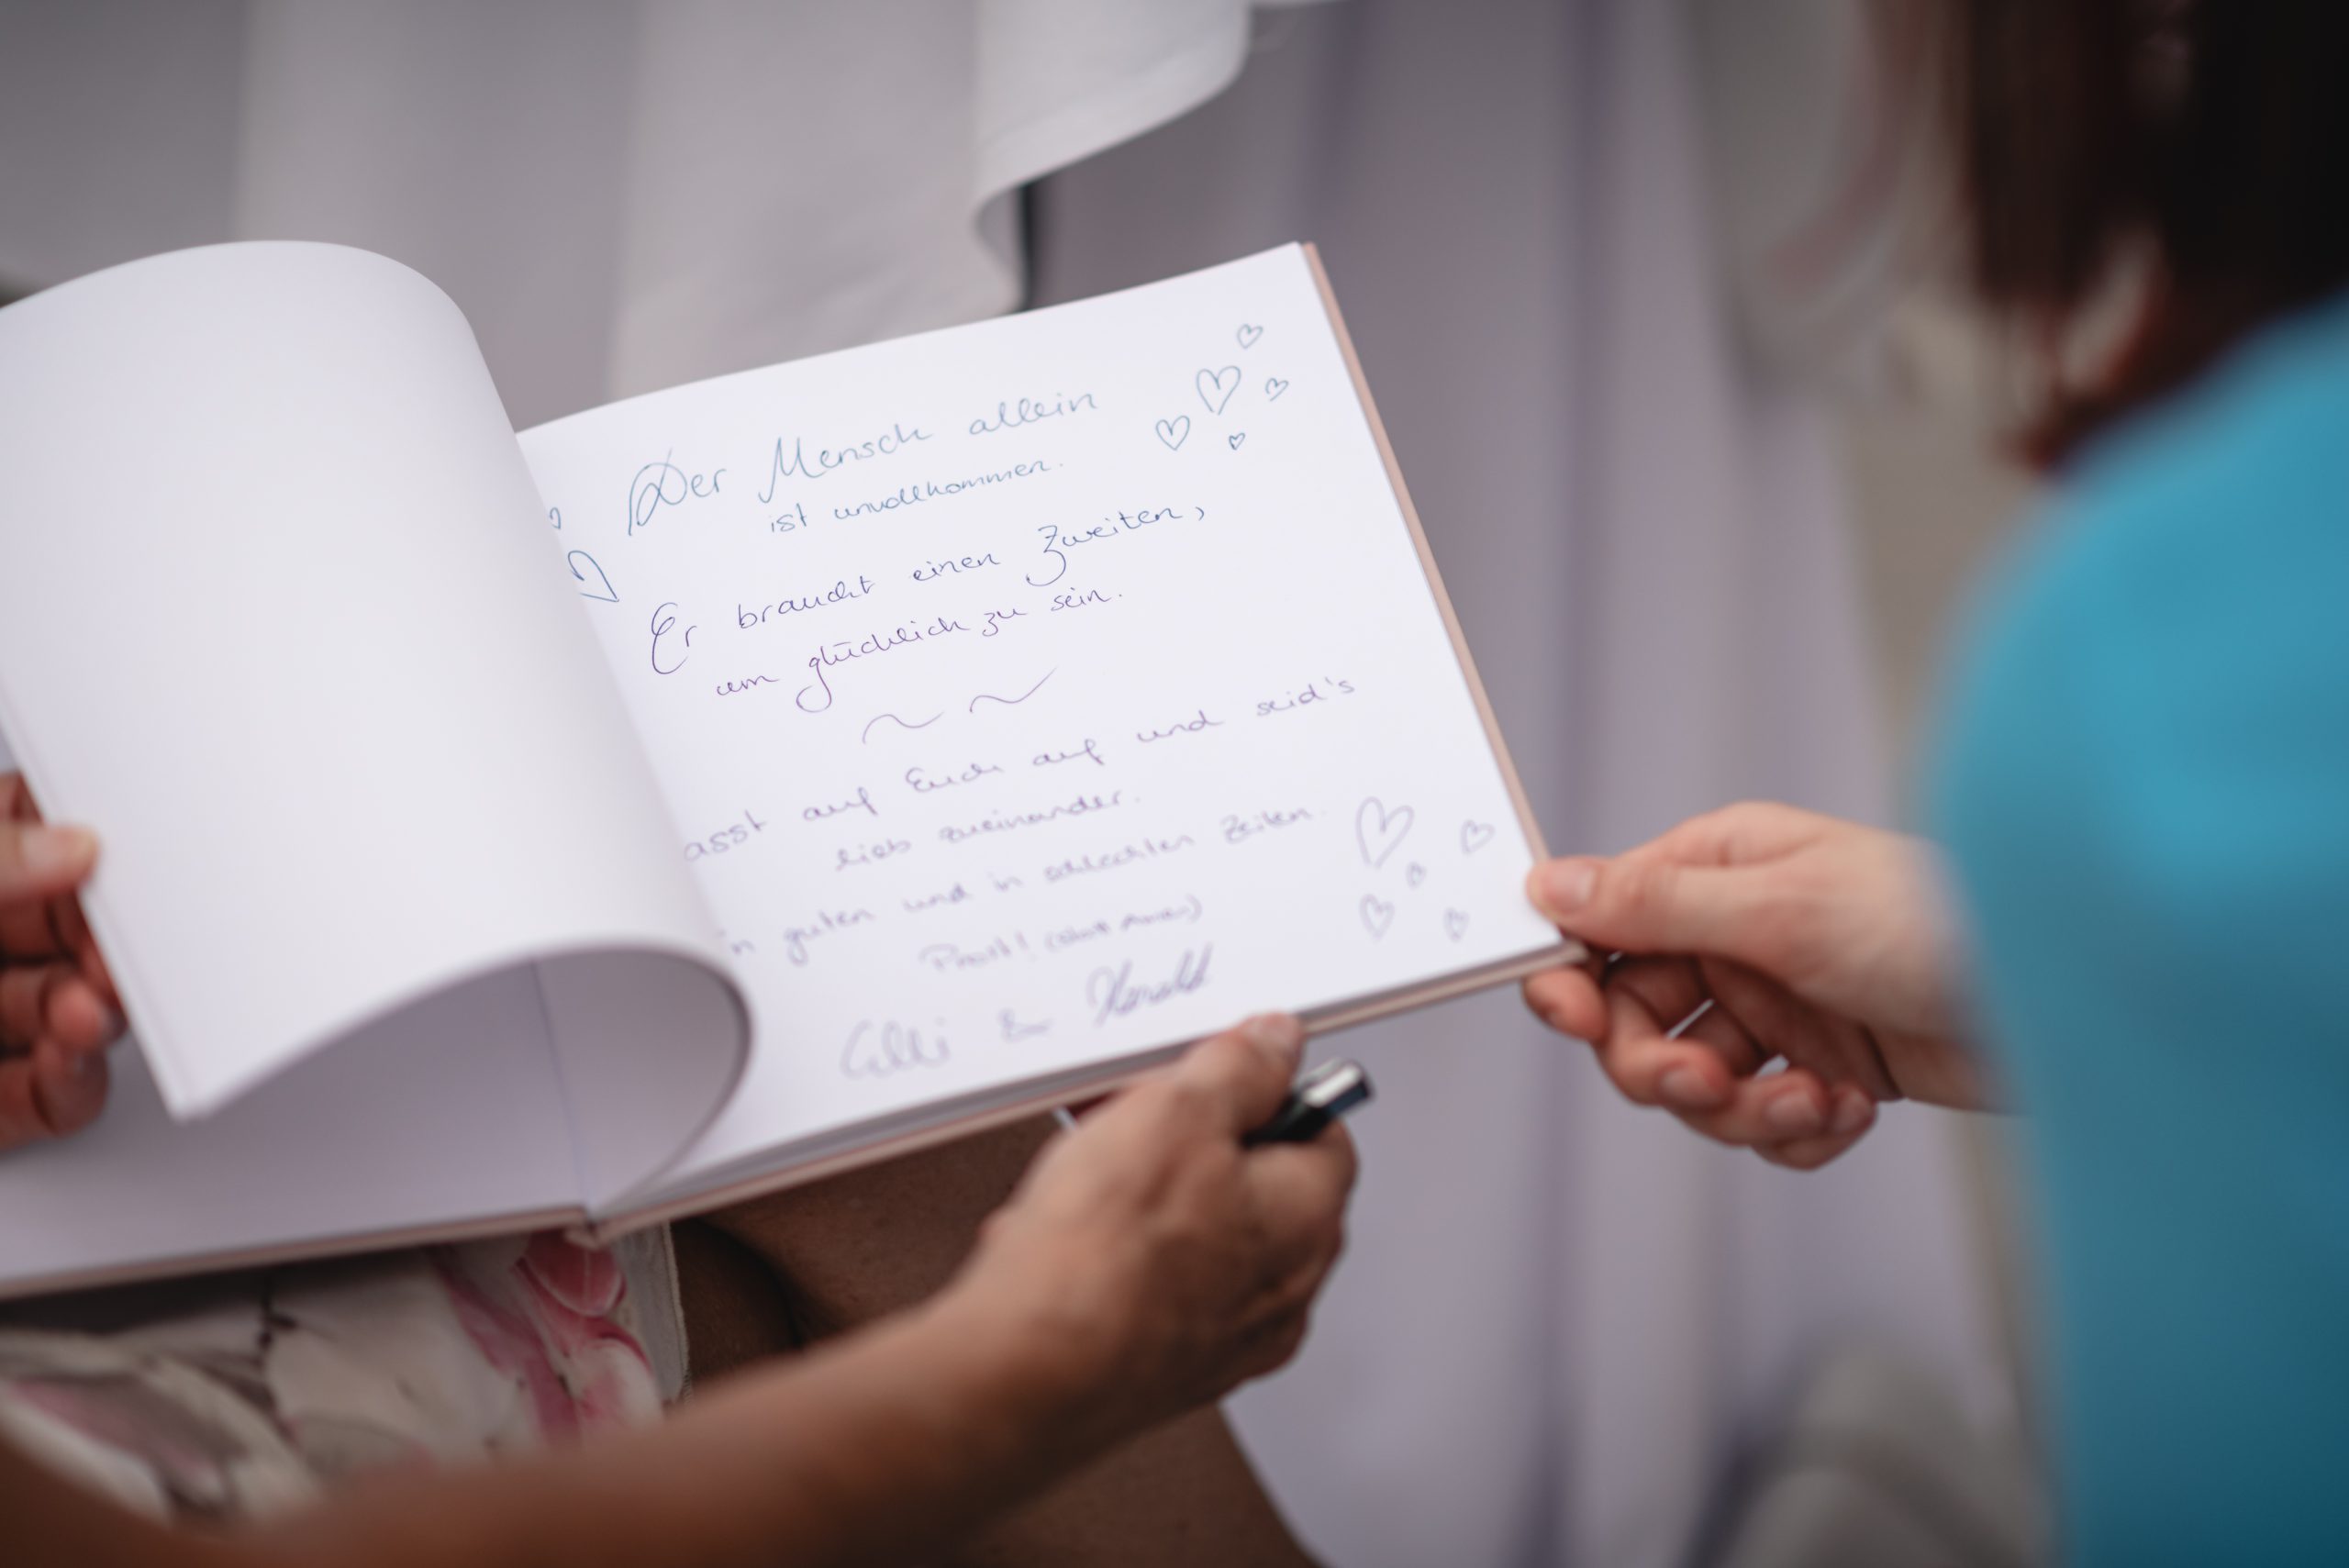 Der Mensch allein
ist unvollkommen.
Er braucht einen Zweiten,
um glücklich zu sein.
asst auf Euch auf und seid's
lieb zueinander.
n guten und in schlechten Zeiten.
Prost! (statt Amen)
& Harald